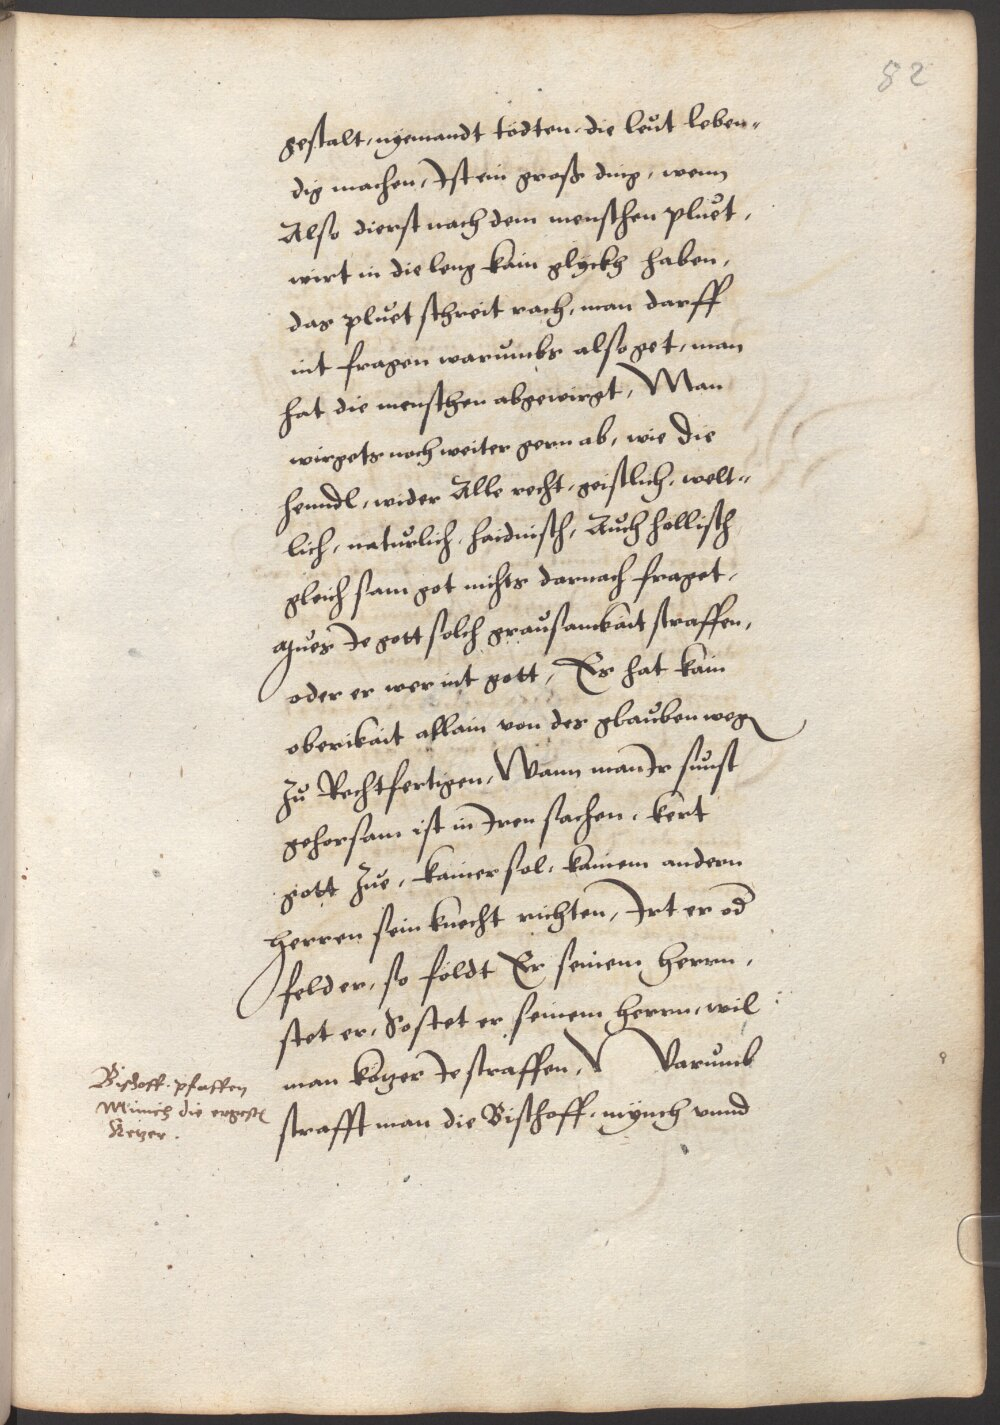 82
gestalt, nyemandt tödten, die leut leben=
dig machen, Ist ein groß ding, wenn
Also dierst nach dem menschen pluet,
wirt in die leng kain glyckh haben,
das pluet schreit rach, man darff
nit fragen warumbs also get, man
hat die menschen abgewirgt, Man
wirgets noch weiter gern ab, wie die
henndl, wider Alle recht, geistlich, welt=
lich, naturlich, haidnisch, Auch hollisch
gleich sam got nichts darnach fraget,
Mues Je gott solch grausamkait straffen,
oder er wer nit gott, Es hat kain
oberikait allain von des glauben weg
zu Rechtfertigen, Wann man Ir sunst
gehorsam ist in Iren sachen, kert
gott zue, kainer sol, kainem andern
herren sein knecht richten, Irt er od
feld er, so földt Er seinem herrn,
stet er, So stet er seinem herrn, wil
man kötzer Je straffen, Warumb
strafft man die Bischoff, mynch vnnd
Bischoff, pfaffen
Münich die ergest
Ketzer.